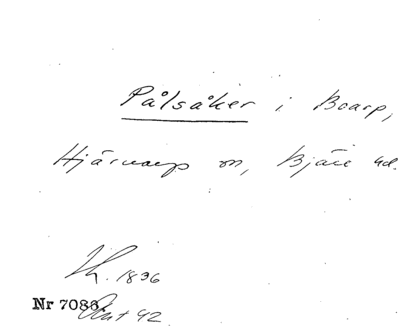 Pålsåker i Boarp,
Hjärnarp sn, Bjäre hd.
1896
Nr 7086.
42